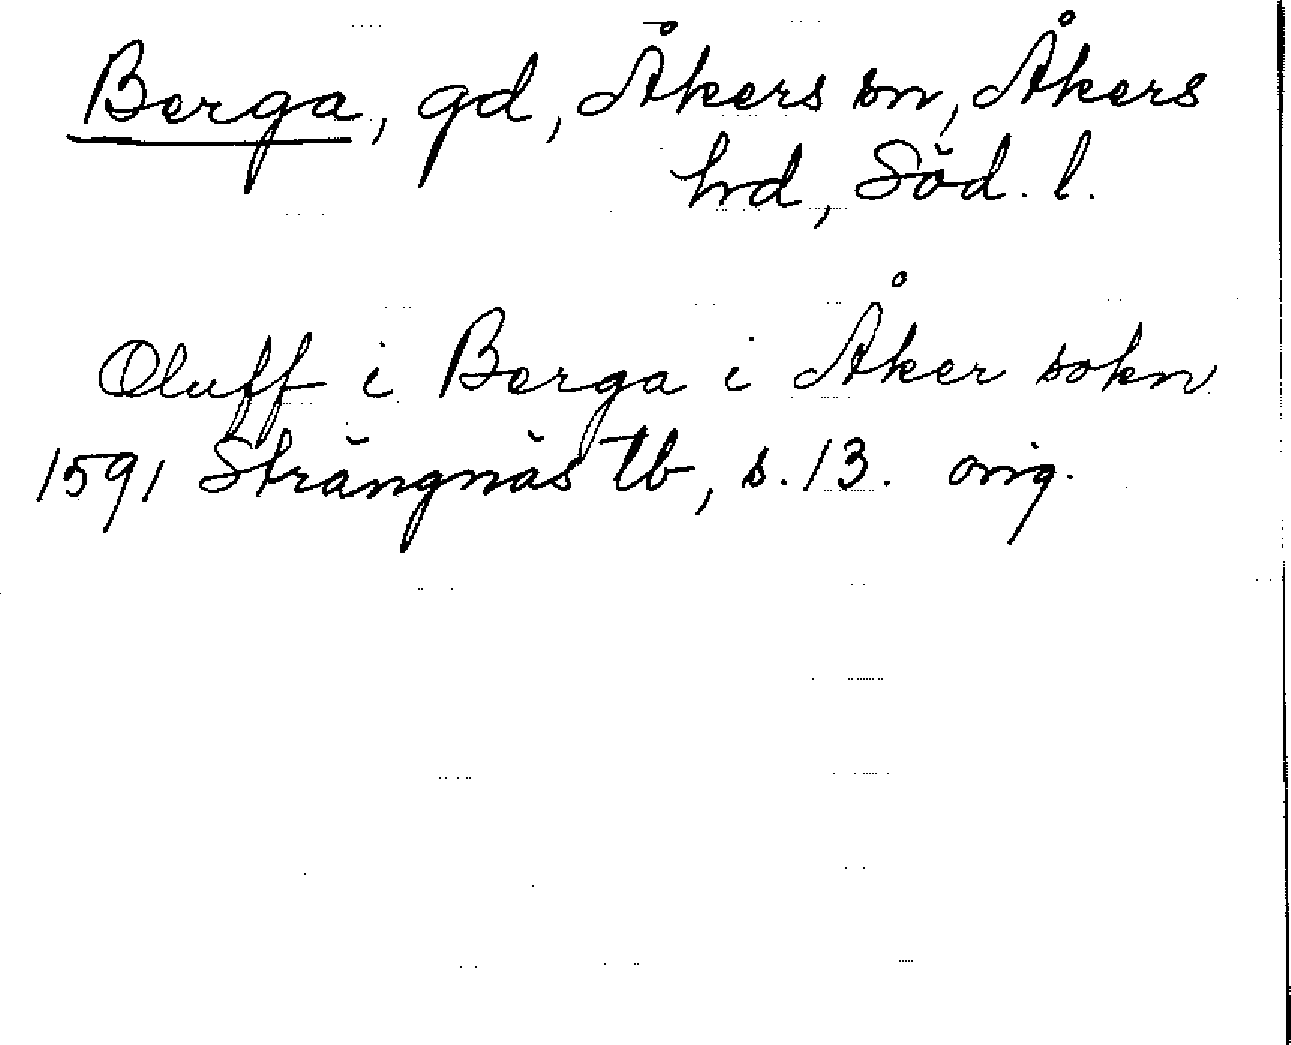 Berga, gd, Åkers sn, Åkers
hrd, Söd. l.
Oluff i Berga i Åker sokn
1591 Strängnäs tb, s. 13. orig.